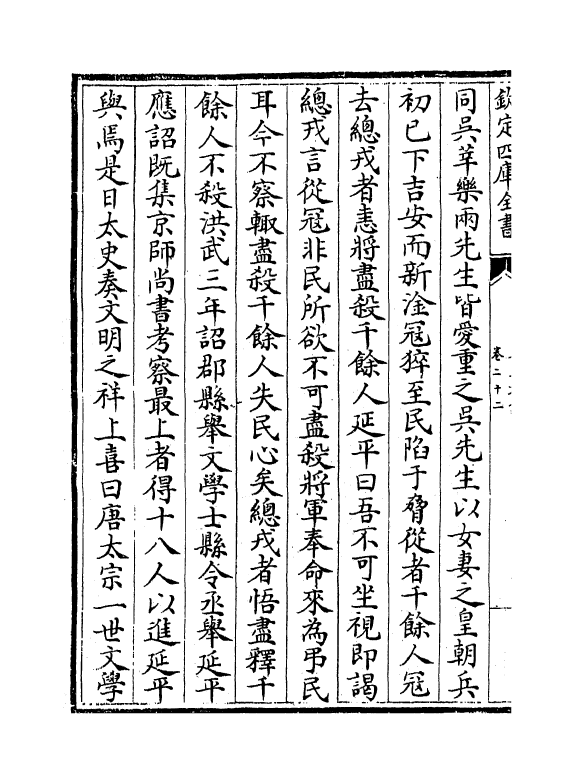 欽定四庫全書
卷二十二
同吳草樂兩先生皆愛重之吳先生以女妻之皇朝兵
初已下吉安而新淦冦猝至民陷于脅從者千餘人冦
去總戎者恚將盡殺千餘人延平曰吾不可坐視即謁
總戎言從冦非民所欲不可盡殺將軍奉命來為弔民
耳今不察輙盡殺千餘人失民心矣總戎者悟盡釋千
餘人不殺洪武三年詔郡縣舉文學士縣令丞舉延平
應詔既集京師尚書考察最上者得十八人以進延平
與焉是日太史奏文明之祥上喜曰唐太宗一世文學